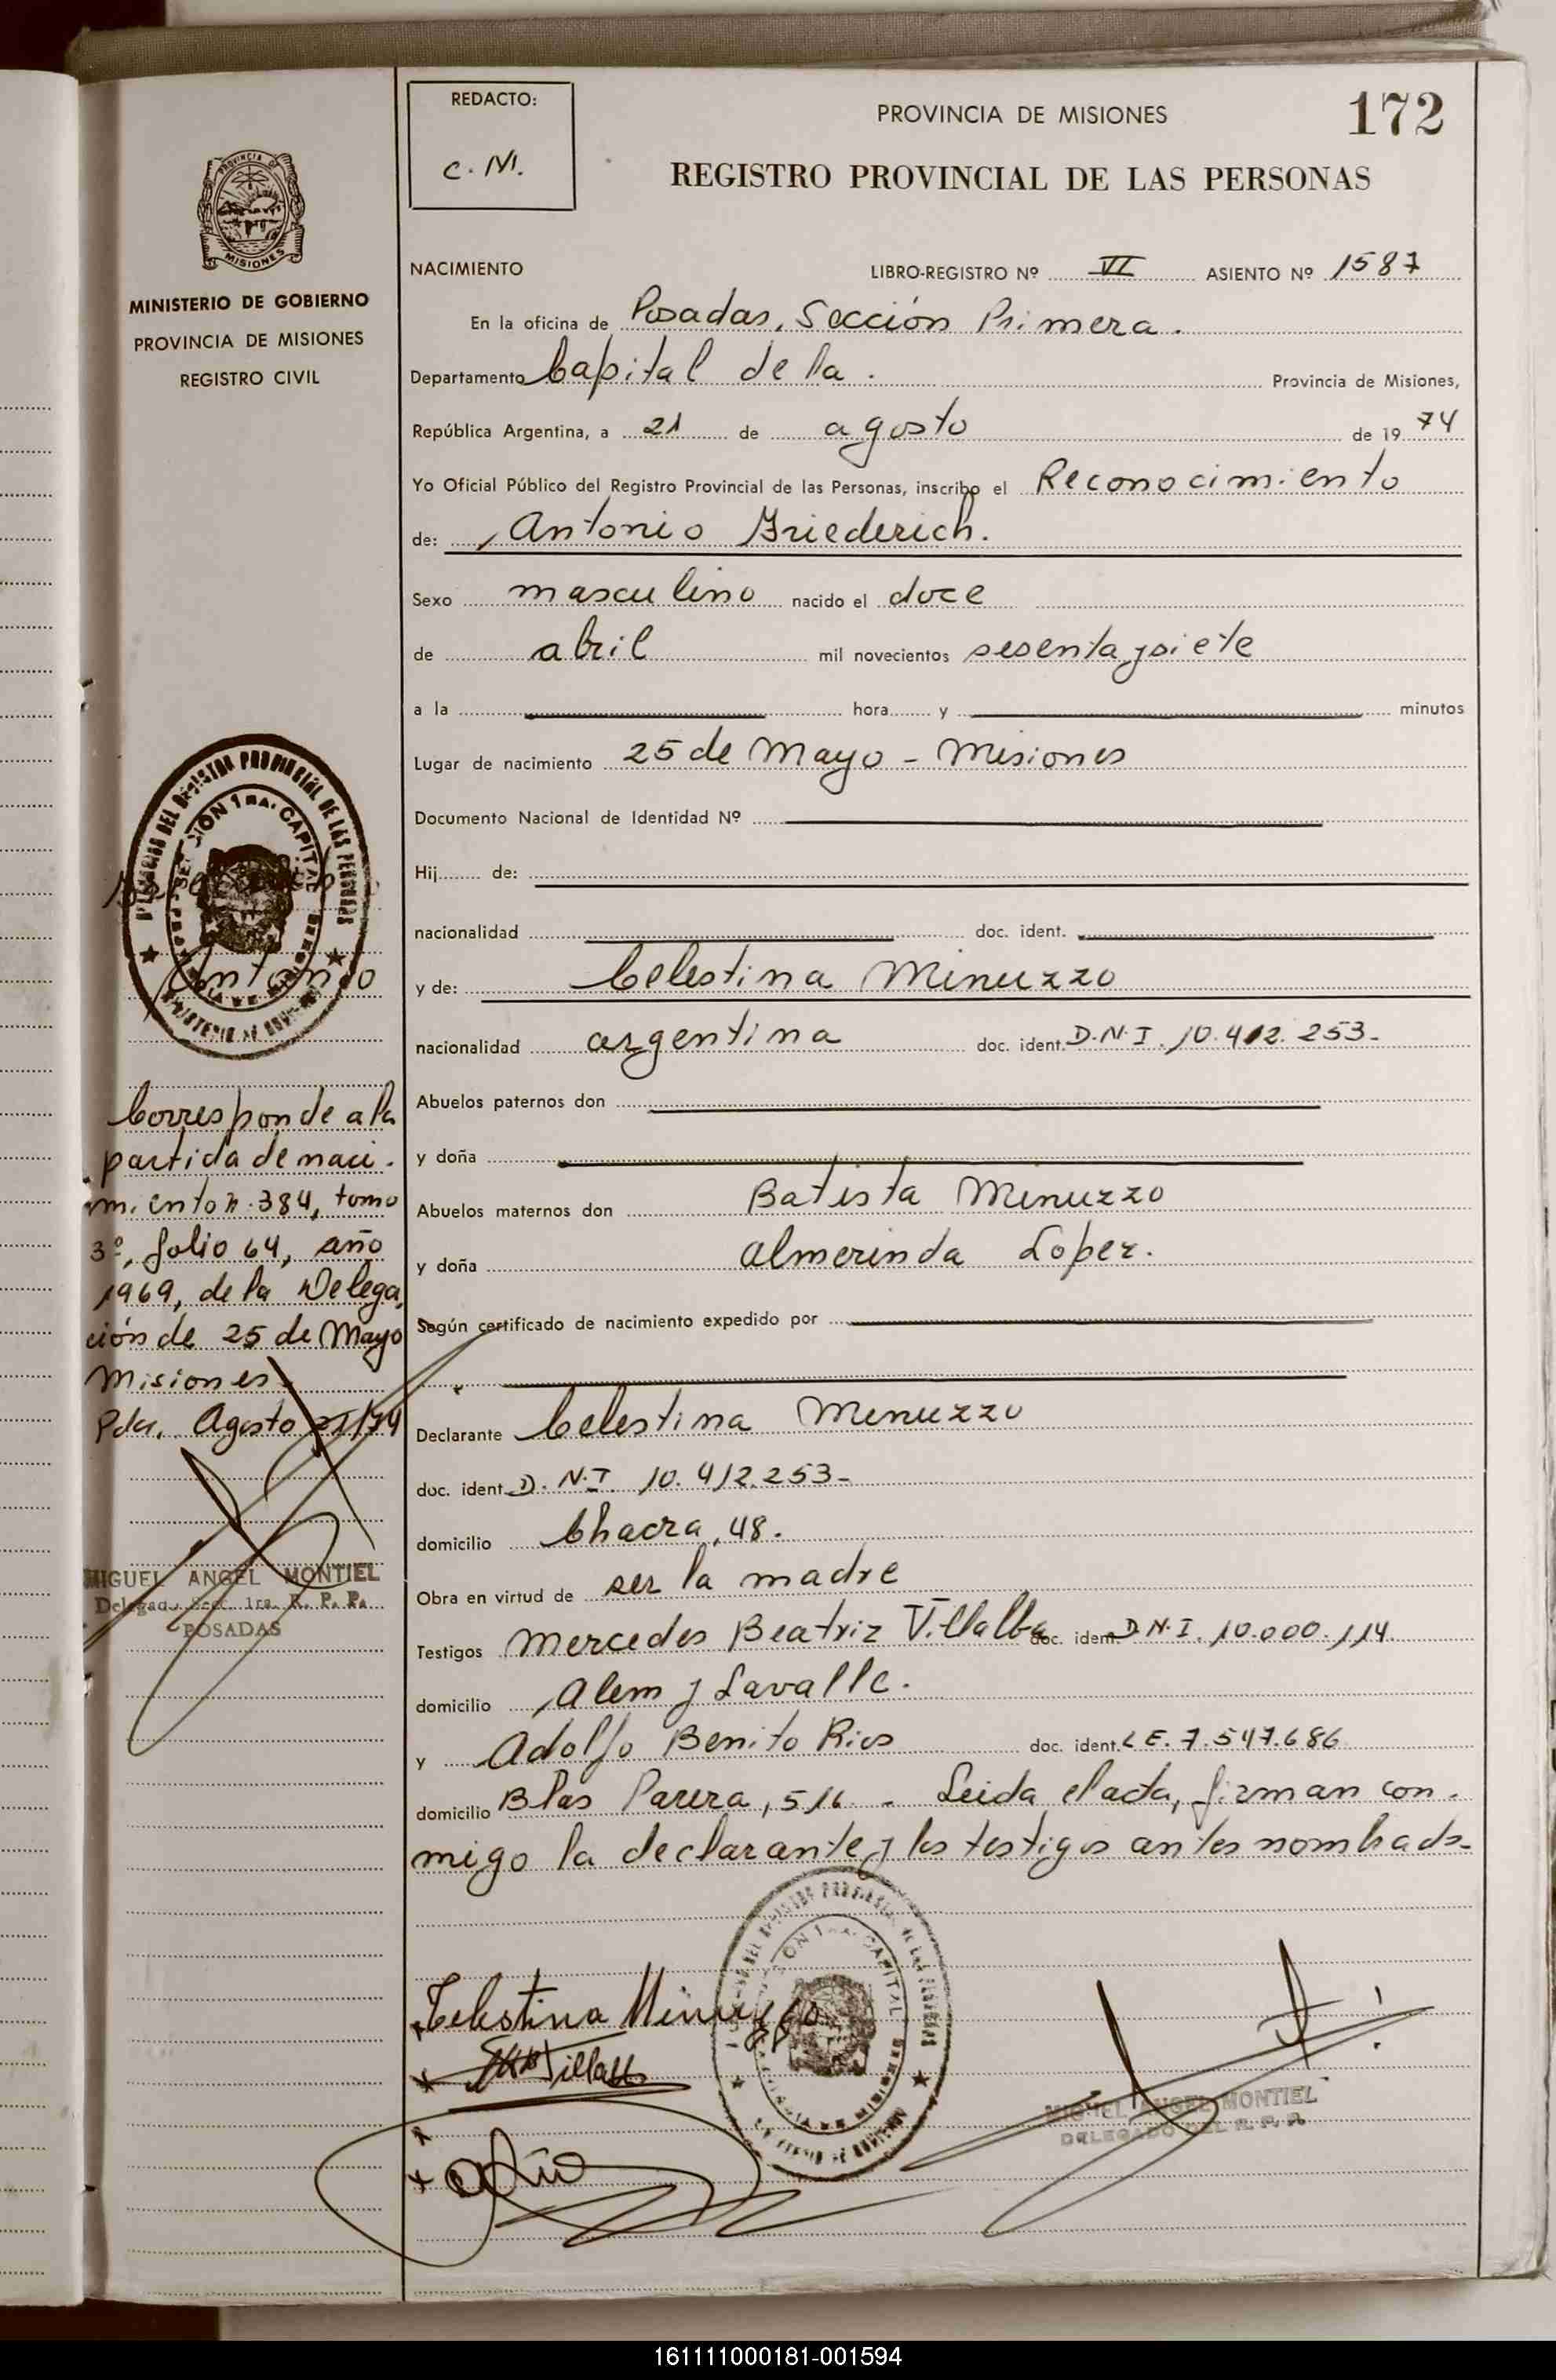 172
REDACTO:
C. M.
PROVINCIA DE MISIONES
REGISTRO PROVINCIAL DE LAS PERSONAS
PROVINCIA DE
MISIONES
MINISTERIO DE GOBIERNO
PROVINCIA DE MISIONES
REGISTRO CIVIL
NACIMIENTO LIBRO-REGISTRO Nº VI ASIENTO Nº 1587
En la oficina de Posadas, Sección Primera.
Departamento Capital de la. Provincia de Misiones,
República Argentina, a 21 de agosto de 19 74
Yo Oficial Público del Registro Provincial de las Personas, inscribo el Reconocimiento
de: Antonio Friederich.
Sexo masculino nacido el doce
de abril mil novecientos sesenta y siete
a la hora y minutos
Lugar de nacimiento 25 de Mayo - Misiones
Documento Nacional de Identidad Nº
Hij de:
nacionalidad doc. ident.
y de: Celestina Minuzzo
nacionalidad argentina doc. ident. D.N.I. 10.412.253-
Abuelos paternos don
y doña
Abuelos maternos don Batista Minuzzo
y doña Almerinda Lopez.
Según certificado de nacimiento expedido por
Declarante Celestina Minuzzo
doc. ident. D.N.I. 10.412.253-
domicilio Chacra, 48.
Obra en virtud de ser la madre
Testigos Mercedes Beatriz Villalba doc. ident. D.N.I. 10.000.114.
domicilio Alem y Lavalle.
y Adolfo Benito Rios doc. ident. L E. 7.547.686
domicilio Blas Parera, 516. - Leida el acta, firman con-
migo la declarante y los testigos antes nombrados-
Antonio
Corresponde a la
partida de naci-
miento n. 384, tomo
3º, folio 64, año
1969, de la Delega
ción de 25 de Mayo
Misiones
Pdas, Agosto 21/74
MIGUEL ANGEL MONTIEL
Delegado Secc. 1ra. R. P. P.
POSADAS
Celestina Minuzzo
MIGUEL ANGEL MONTIEL
DELEGADO DEL R. P. P.
161111000181-001594